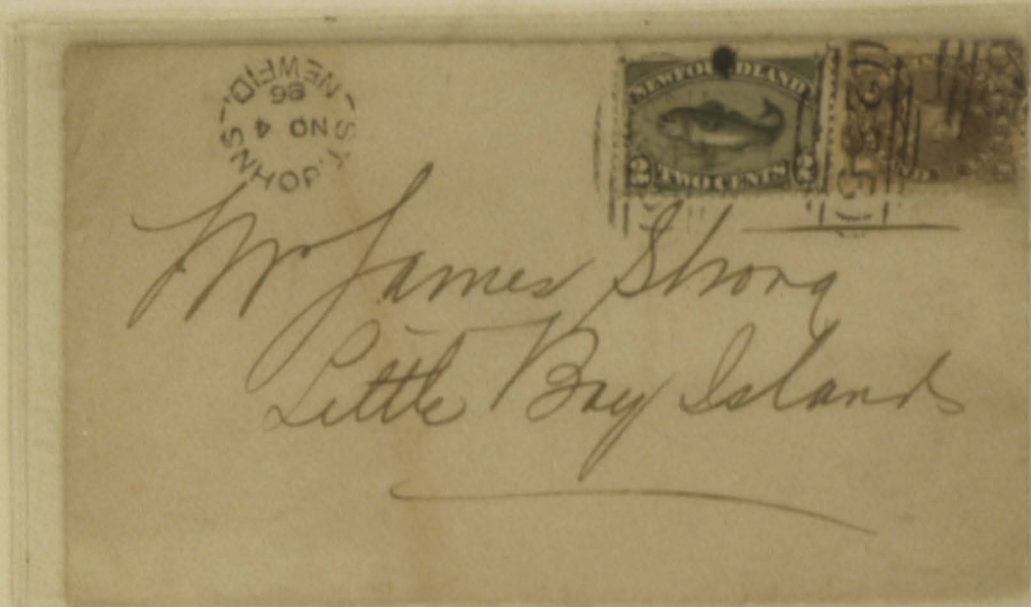 ST. JOHNS NEWF'D.
NO 4
NEWFOUNDLAND
2 TWO CENTS 2
Mr James Strong
Little Bay Islands